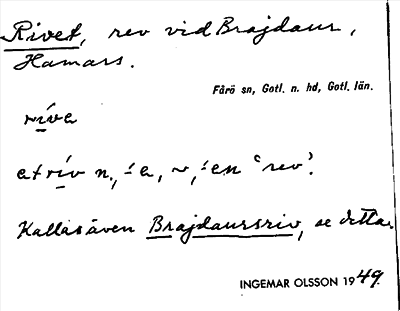 Rivet, rev vid Brajdaur,
Hamars.
Fårö sn, Gotl. n. hd, Gotl. län.
rive
et rív n., -́e, ~, -́en "rev".
Kallas även Brajdaursriv, se detta.
INGEMAR OLSSON 1949.